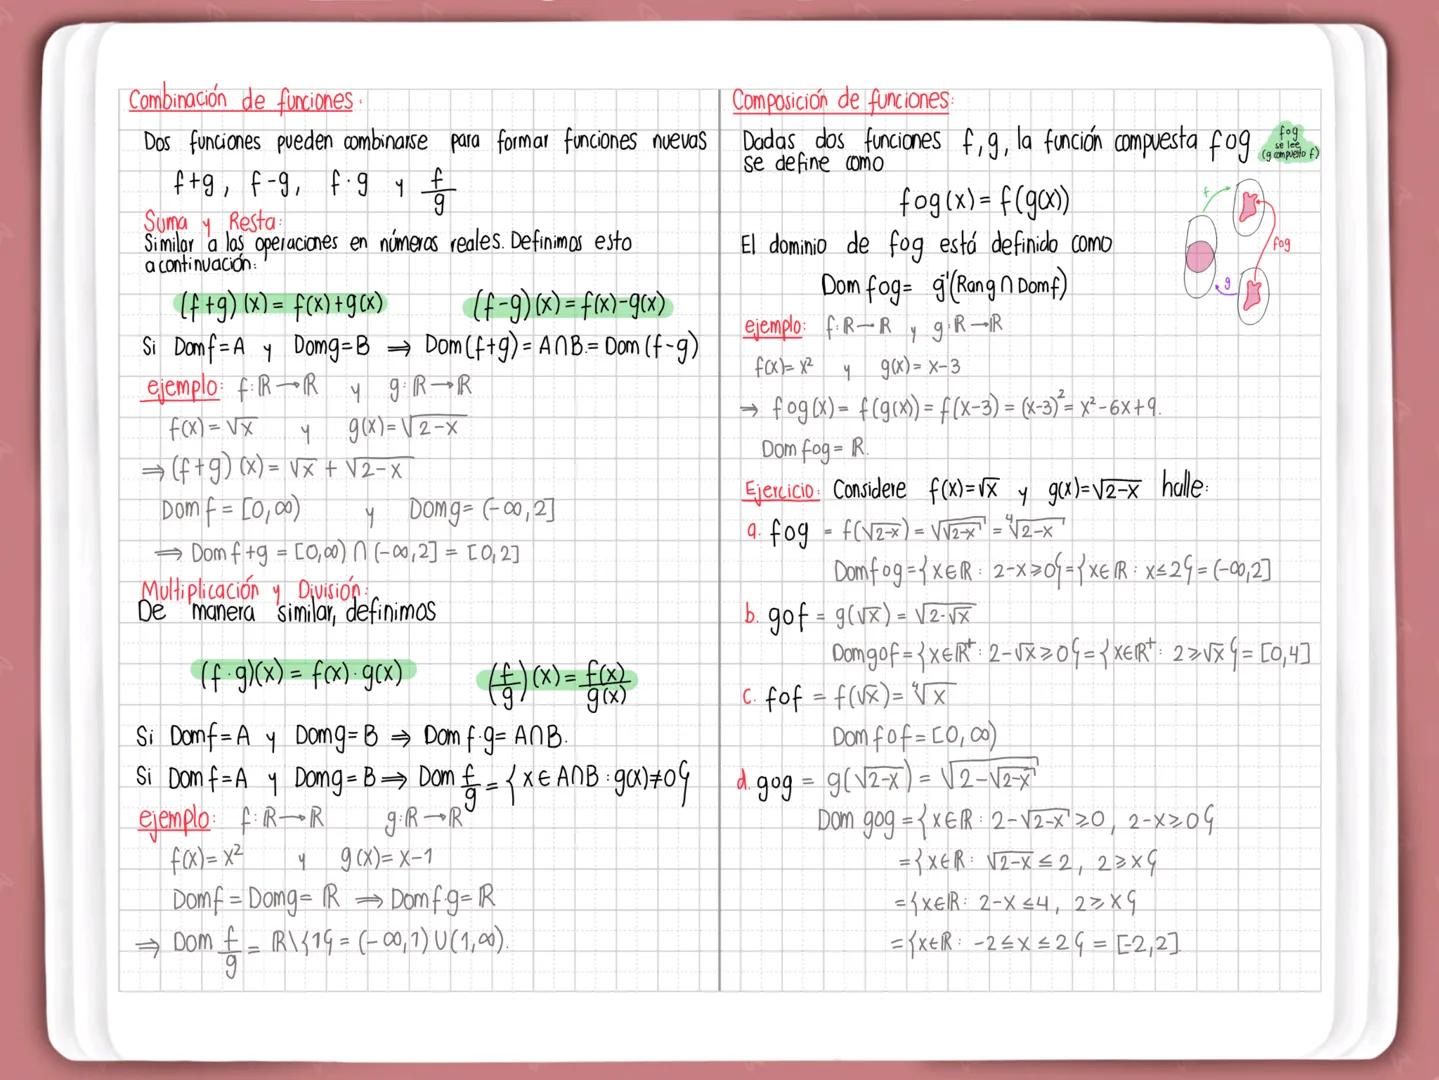 Combinación de funciones.
Dos funciones pueden combinarse para formar funciones nuevas
f+g, f-g, f·g y f/g
Suma y Resta:
Similar a las operaciones en números reales. Definimos esto
a continuación:
(f+g)(x) = f(x)+g(x) (f-g)(x) = f(x)-g(x)
Si Domf=A y Domg=B ⇒ Dom(f+g) = A∩B = Dom(f-g)
ejemplo: f:ℝ→ℝ y g:ℝ→ℝ
f(x)=√x y g(x)=√2-x
⇒ (f+g)(x) = √x + √2-x
Domf = [0,∞) y Domg= (-∞,2]
⇒ Domf+g = [0,∞) ∩ (-∞,2] = [0,2]
Multiplicación y División:
De manera similar, definimos
(f·g)(x) = f(x)·g(x) (f/g)(x) = f(x)/g(x)
Si Domf=A y Domg=B ⇒ Dom f·g= A∩B.
Si Domf=A y Domg=B ⇒ Dom f/g = {x∈A∩B : g(x)≠0}
ejemplo: f:ℝ→ℝ g:ℝ→ℝ
f(x)=x² y g(x)=x-1
Domf = Domg= ℝ ⇒ Domf·g= ℝ
⇒ Dom f/g = ℝ\{1} = (-∞,1)∪(1,∞).
Composición de funciones:
Dadas dos funciones f,g, la función compuesta fog
se define como
fog
se lee
(g compuesto f)
fog(x) = f(g(x))
f
fog
g
El dominio de fog está definido como
Dom fog= g⁻¹(Rang∩Domf)
ejemplo: f:ℝ→ℝ y g:ℝ→ℝ
f(x)=x² y g(x)=x-3
⇒ fog(x) = f(g(x)) = f(x-3) = (x-3)² = x²-6x+9.
Dom fog= ℝ.
Ejercicio: Considere f(x)=√x y g(x)=√2-x halle:
a. fog = f(√2-x) = √√2-x = ⁴√2-x
Domfog={x∈ℝ : 2-x≥0}={x∈ℝ : x≤2}=(-∞,2]
b. gof = g(√x) = √2-√x
Domgof={x∈ℝ⁺: 2-√x≥0}={x∈ℝ⁺: 2≥√x}=[0,4]
c. fof = f(√x) = ⁴√x
Dom fof=[0,∞)
d. gog = g(√2-x) = √2-√2-x
Dom gog ={x∈ℝ : 2-√2-x≥0, 2-x≥0}
={x∈ℝ : √2-x≤2, 2≥x}
={x∈ℝ: 2-x≤4, 2≥x}
={x∈ℝ: -2≤x≤2} = [-2,2]